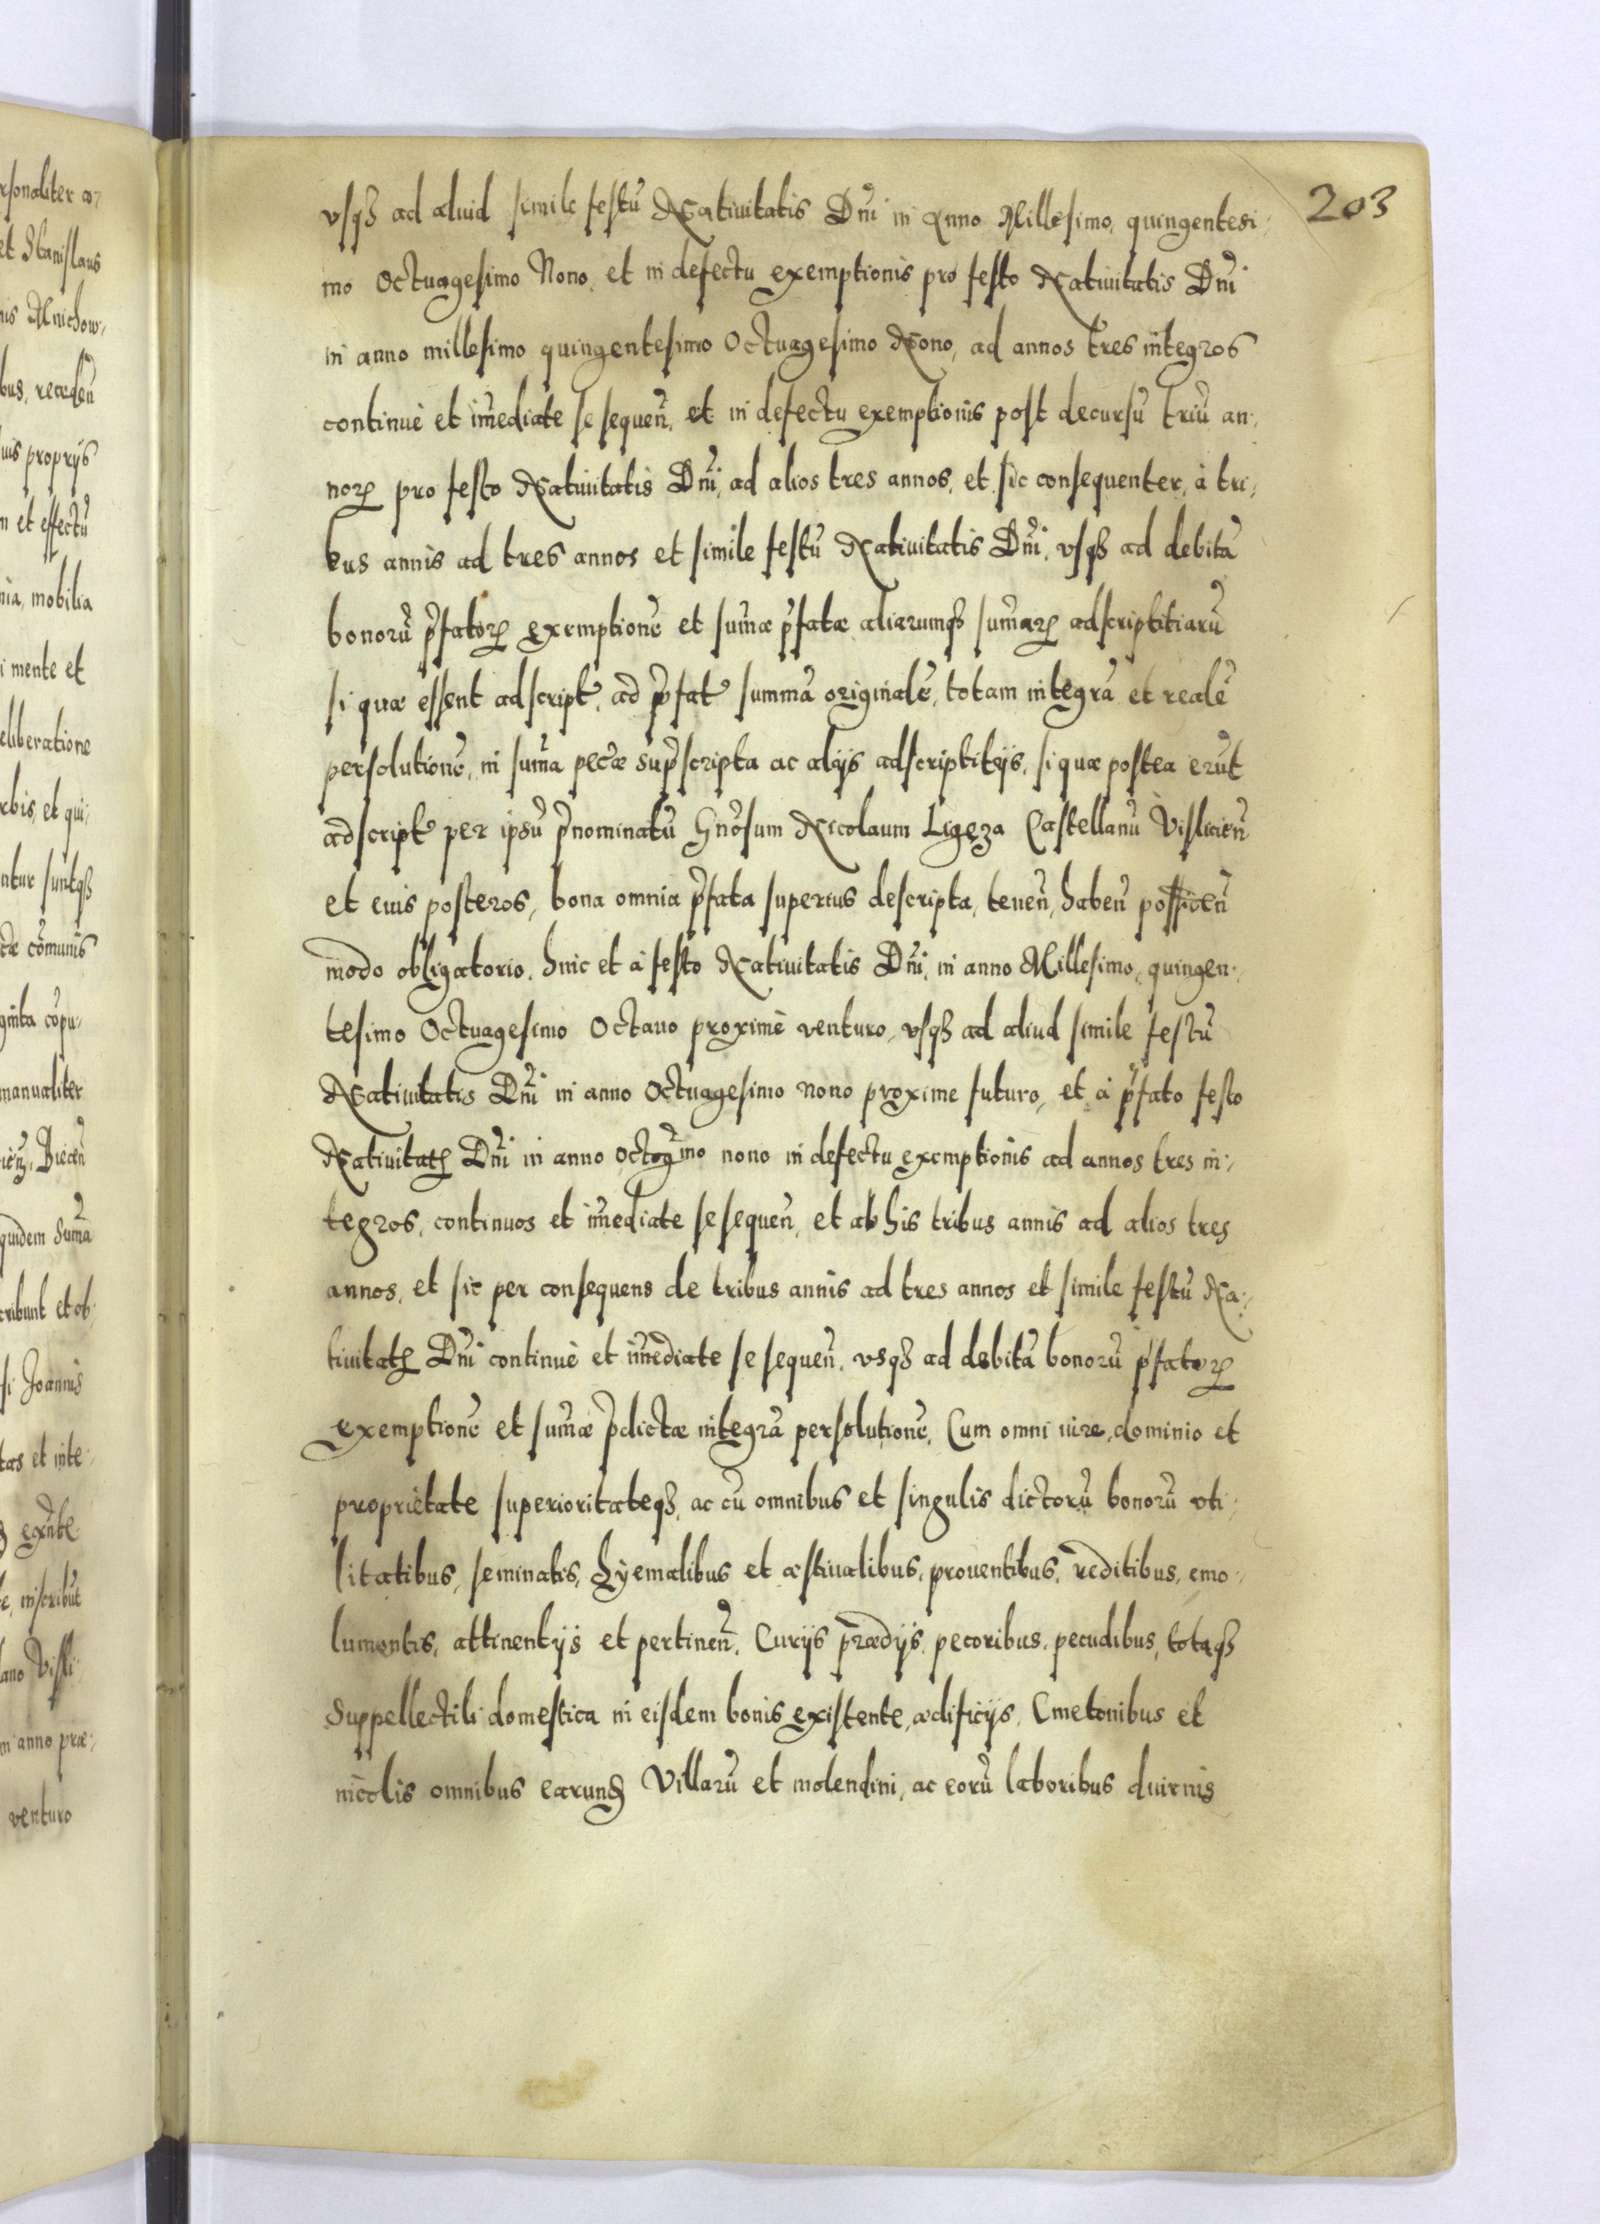 203
vsqȝ ad aliud simile festū Natiuitatis Dn̄i in Anno Millesimo, quingentesi-
mo Octuagesimo Nono, et in defectu exemptionis pro festo Natiuitatis Dn̄i
in anno millesimo quingentesimo Octuagesimo Nono, ad annos tres integros
continuè et im̄ediate se sequen̄, et in defectu exemptionis post decursū triū an-
norꝝ pro festo Natiuitatis Dn̄i, ad alios tres annos, et sic consequenter, à tri-
bus annis ad tres annos et simile festū Natiuitatis Dn̄i, vsqȝ ad debitā
bonorū p̄fatorꝝ exemptionē et sum̄æ p̄fatæ aliarumqȝ sum̄arꝝ adscriptitiarū
si quæ essent adscript̉, ad p̄fat̉ summā originalē, totam integrā et realē
persolutionē, in sum̄a pec̄æ sup̄scripta ac alijs adscriptitijs, si quæ postea erūt
adscript̉ per ipsū p̄nominatū Gn̄osum Nicolaum Ligęza Castellanū Visliciēn
et eius posteros, bona omnia p̄fata superius descripta, tenen̄, haben̄ possiden̄
modo obligatorio, hinc et à festo Natiuitatis Dn̄i, in anno Millesimo, quingen-
tesimo Octuagesimo Octauo proximè venturo, vsqȝ ad aliud simile festū
Natiuitatis Dn̄i in anno Octuagesimo nono proxime futuro, et à p̄fato festo
Natiuitatꝭ Dn̄i in anno octog̅mo nono in defectu exemptionis ad annos tres in-
tegros, continuos et im̄ediate se sequen̄, et ab his tribus annis ad alios tres
annos, et sic per consequens de tribus annis ad tres annos et simile festū Na-
tiuitatꝭ Dn̄i continuè et im̄ediate se sequen̄, vsqȝ ad debitā bonorū p̄fatorꝝ
exemptionē et sum̄æ p̄dictæ integrā persolutionē, Cum omni iure, dominio et
proprietate superioritateqȝ, ac cū omnibus et singulis dictorū bonorū vti-
litatibus, seminatis, hyemalibus et æstiualibus, prouentibus, reditibus, emo-
lumentis, attinentijs et pertinen̄, Curijs prædijs, pecoribus, pecudibus, totaqȝ
Suppellectili domestica in eisdem bonis existente, ædificijs, Cmetonibus et
incolis omnibus earundȝ Villarū et molendini, ac eorū laboribus diurnis